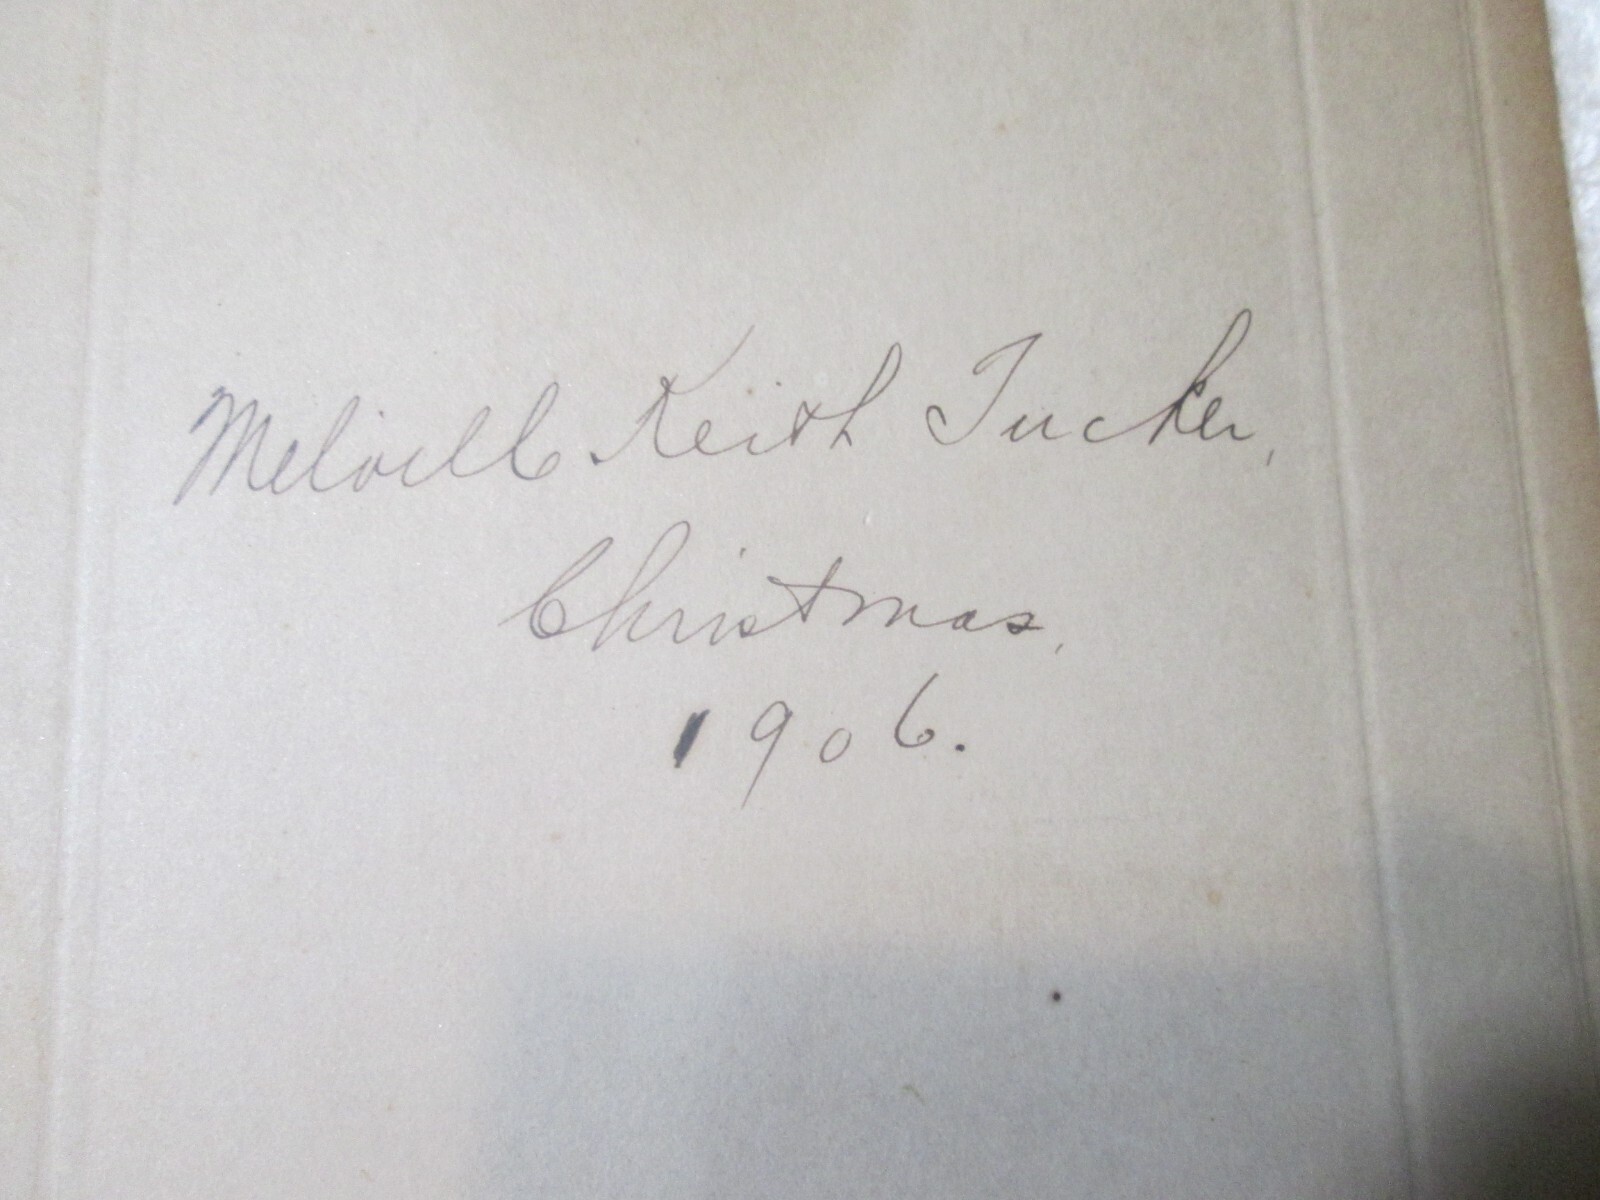 Melvill Keith Tucker,
Christmas,
1906.